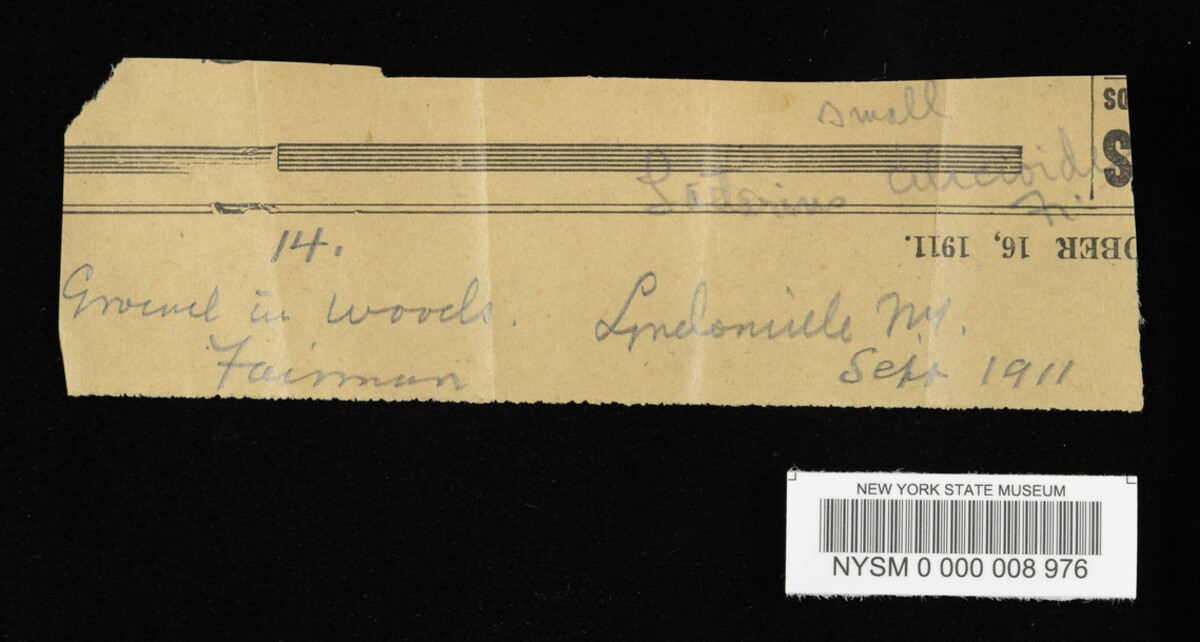 small
DS
S
Fr.
OBER 16, 1911.
14.
Ground in woods.
Lyndonville NY.
Fairman
Sept 1911
NEW YORK STATE MUSEUM
NYSM 0 000 008 976